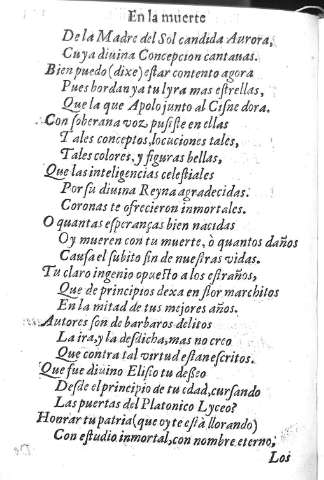 En la muerte
De la Madre del Sol candida Aurora,
Cuya diuina Concepcion cantauas.
Bien puedo (dixe) eſtar contento agora
Pues bordan ya tu lyra mas eſtrellas,
Que la que Apolo junto al Ciſne dora.
Con ſoberana voz puſiſte en ellas
Tales conceptos, locuciones tales,
Tales colores, y figuras bellas,
Que las inteligencias celeſtiales
Por ſu diuina Reyna agradecidas.
Coronas te ofrecieron inmortales.
O quantas eſperanças bien nacidas
Oy mueren con tu muerte, ò quantos daños
Cauſa el ſubito fin de nueſtras vidas.
Tu claro ingenio opueſto a los eſtraños,
Que de principios dexa en flor marchitos
En la mitad de tus mejores años.
Autores ſon de barbaros delitos
La ira, y la deſdicha, mas no creo
Que contra tal virtud eſtan eſcritos.
Que fue diuino Eliſio tu deſſeo
Deſde el principio de tu edad, curſando
Las puertas del Platonico Lyceo?
Honrar tu patria (que oy te eſtà llorando)
Con eſtudio inmortal, con nombre eterno,
Los